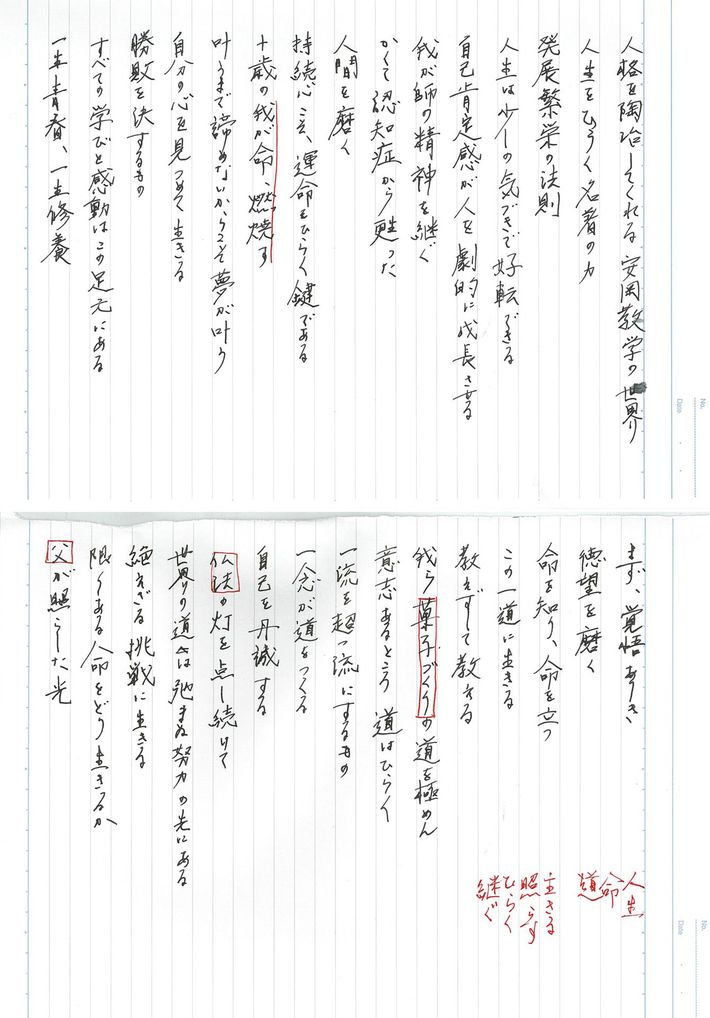 人格を陶冶してくれる安岡教学の世界
人生をひらく名著の力
発展繁栄の法則
人生は少しの気づきで好転できる
自己肯定感が人を劇的に成長させる
我が師の精神を継ぐ
かくて認知症から甦った
人間を磨く
持続心こそ、運命をひらく鍵である
十歳の我が命、燃焼す
叶うまで諦めないからこそ夢が叶う
自分の心を見つめて生きる
勝敗を決するもの
すべての学びと感動はこの足元にある
一生青春、一生修養
No.
Date
まず、覚悟ありき
徳望を磨く
命を知り、命を立つ
この一道に生きる
教えずして教える
我ら菓子づくりの道を極めん
意志あるところ道はひらく
一流を超一流にするもの
一念が道をつくる
自己を丹誠する
仏法の灯を点し続けて
世界への道は弛まぬ努力の先にある
絶えざる挑戦に生きる
限りある人命をどう生きるか
父が照らした光
人生
命
道
生きる
照らす
ひらく
継ぐ
No.
Date